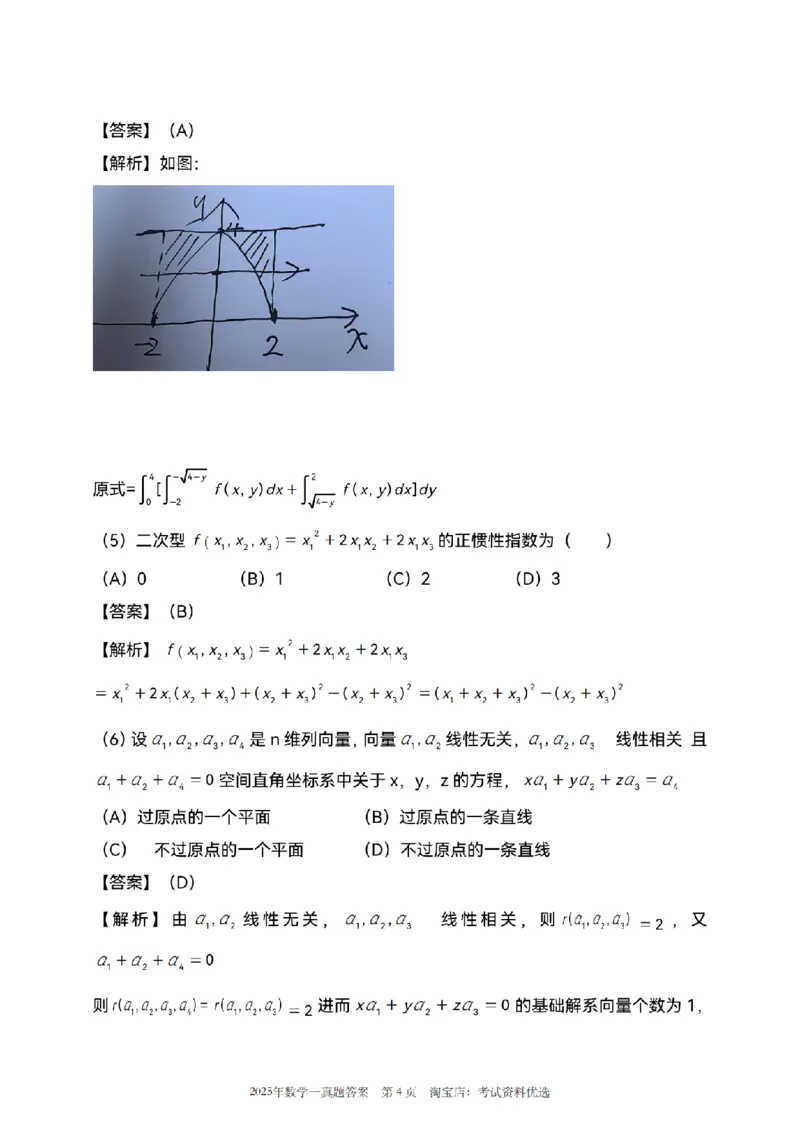 【答案】（A）
【解析】如图：
y
4
-2 2 x
原式=∫_0^4[∫_{-2}^{-√(4-y)} f(x,y)dx+∫_{√(4-y)}^2 f(x,y)dx]dy
（5）二次型 f(x₁,x₂,x₃)=x₁²+2x₁x₂+2x₁x₃的正惯性指数为（ ）
（A）0 （B）1 （C）2 （D）3
【答案】（B）
【解析】 f(x₁,x₂,x₃)=x₁²+2x₁x₂+2x₁x₃
=x₁²+2x₁(x₂+x₃)+(x₂+x₃)²-(x₂+x₃)²=(x₁+x₂+x₃)²-(x₂+x₃)²
（6）设a₁,a₂,a₃,a₄是n维列向量，向量a₁,a₂线性无关，a₁,a₂,a₃ 线性相关 且
a₁+a₂+a₄=0空间直角坐标系中关于x，y，z的方程，xa₁+ya₂+za₃=a₄
（A）过原点的一个平面 （B）过原点的一条直线
（C） 不过原点的一个平面 （D）不过原点的一条直线
【答案】（D）
【解析】由 a₁,a₂ 线性无关， a₁,a₂,a₃ 线性相关，则 r(a₁,a₂,a₃)=2 ，又
a₁+a₂+a₄=0
则r(a₁,a₂,a₃,a₄)=r(a₁,a₂,a₃)=2进而xa₁+ya₂+za₃=0的基础解系向量个数为1，
2025年数学一真题答案 第4页 淘宝店：考试资料优选